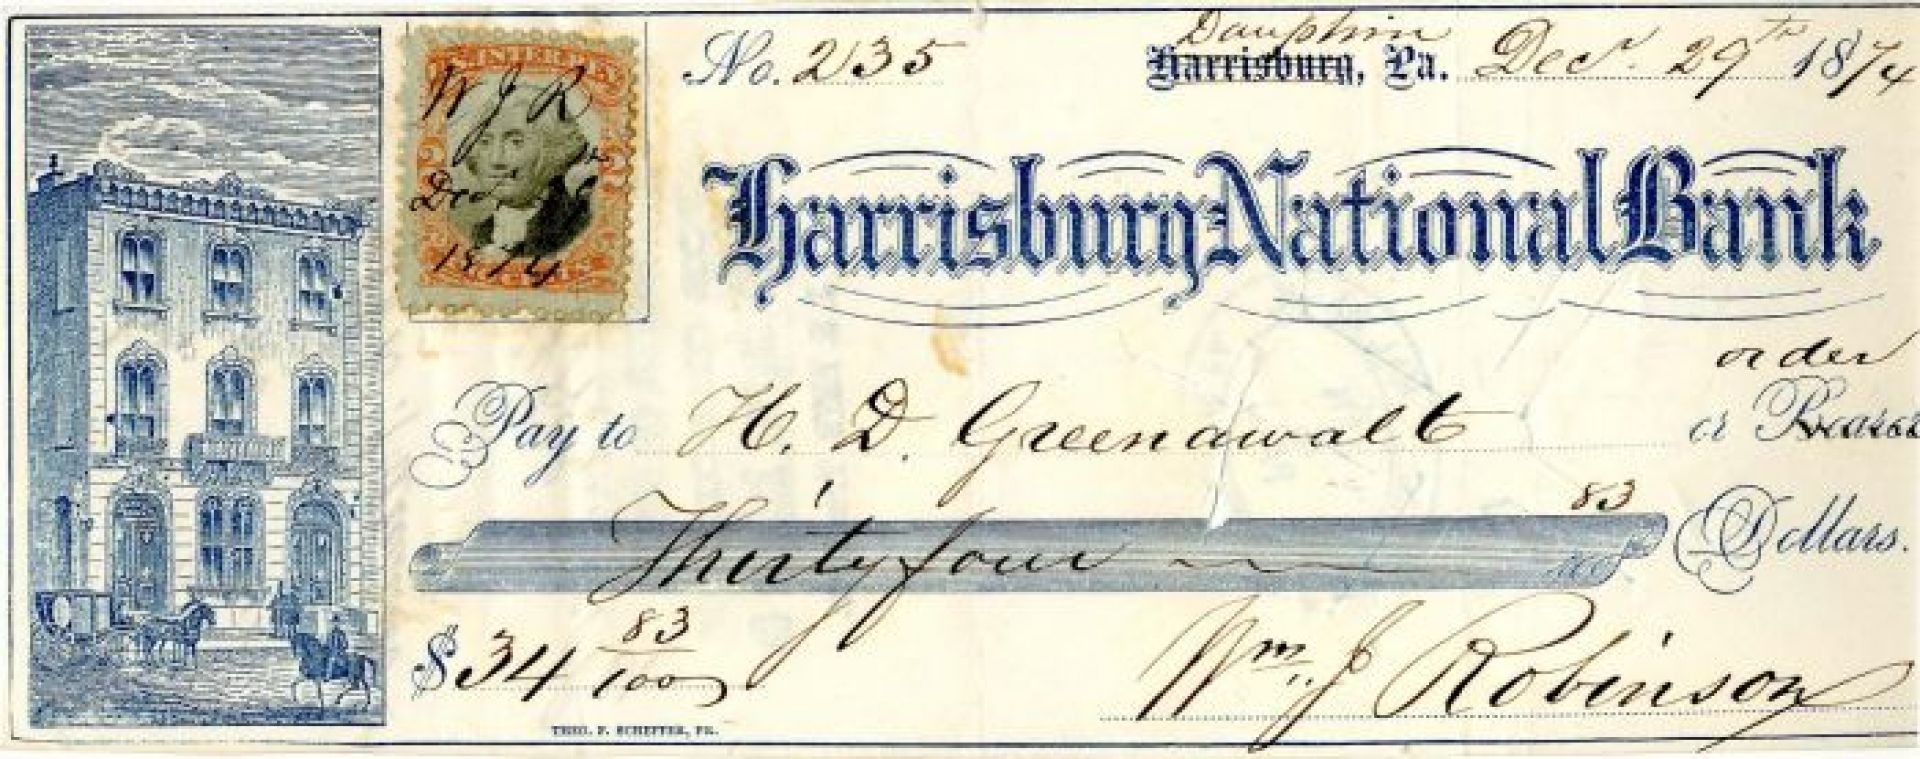 No. 235
Dauphin
Harrisburg, Pa. Decr. 29th 1874
INTER. REV.
W J R
Decr. 29
1874
Harrisburg National Bank
order
Pay to H. D. Greenawalt or Bearer
Thirty four 83/100 Dollars.
$34 83/100
Wm. J Robinson
THEO. F. SCHEFFER, PR.